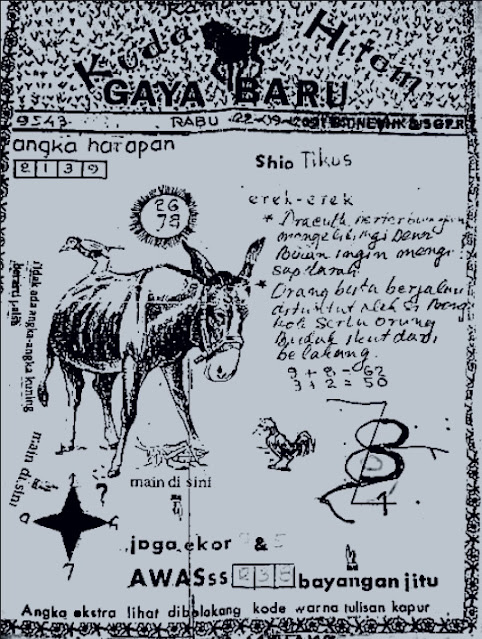 Kuda Hitam
GAYA BARU
9543 RABU
angka harapan
2 1 3 9
Shio Tikus
26
78
erek-erek
* Dracula berterbangan
mengelilingi Dewi
Bulan ingin mengi
sap darah.
* Orang buta berjalan
dituntut oleh si
serta orang
ikut dari
belakang.
9 + 8 = 62
3 + 2 = 50
tidak ada angka-angka kuning
berarti palsu
main di sini
main di sini
?
7
jaga ekor &
AWASss bayangan jitu
Angka ekstra lihat dibelakang kode warna tulisan kapur